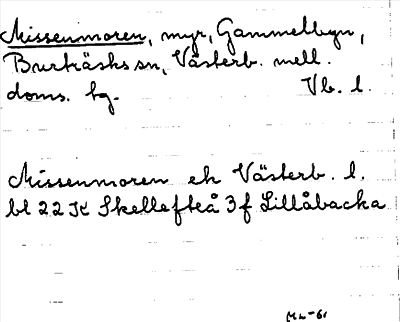 Missenmoren, myr, Gammelbyn,
Burträsks sn, Västerb. mell.
doms. hg. Vb. l.
Missenmoren ek Västerb. l.
bl 22 K Skellefteå 3 f Lillåbacka
ML-61